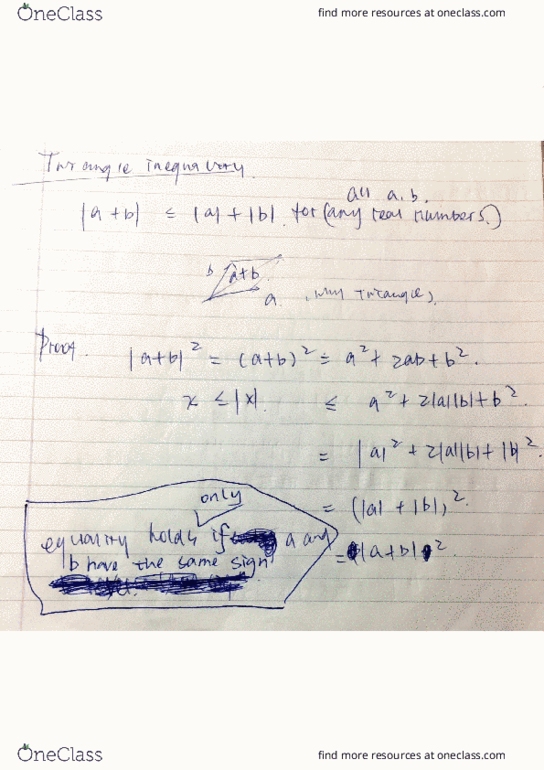 OneClass
find more resources at oneclass.com
Triangle inequality.
all a, b.
|a+b| ≤ |a| + |b|. for (any real numbers.)
b
a+b
a. why triangle).
Proof. |a+b|² = (a+b)² = a² + 2ab + b².
x ≤ |x|. ≤ a² + 2|a||b| + b².
= |a|² + 2|a||b| + |b|²
= (|a| + |b|)².
only
equality holds if a and
b have the same sign
= |a+b|².
OneClass
find more resources at oneclass.com